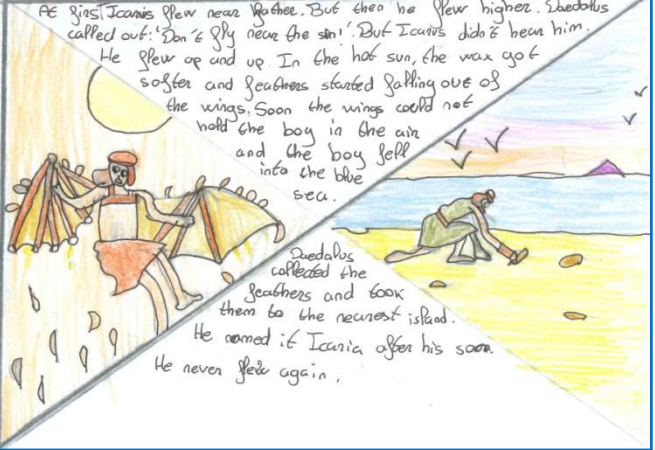 At first Icarus flew near father. But then he flew higher. Daedalus
called out: 'Don't fly near the sun!'. But Icarus didn't hear him.
He flew up and up. In the hot sun, the wax got
softer and feathers started falling out of
the wings. Soon the wings could not
hold the boy in the air
and the boy fell
into the blue
sea.
Daedalus
collected the
feathers and took
them to the nearest island.
He named it Icaria after his soon.
He never flew again.